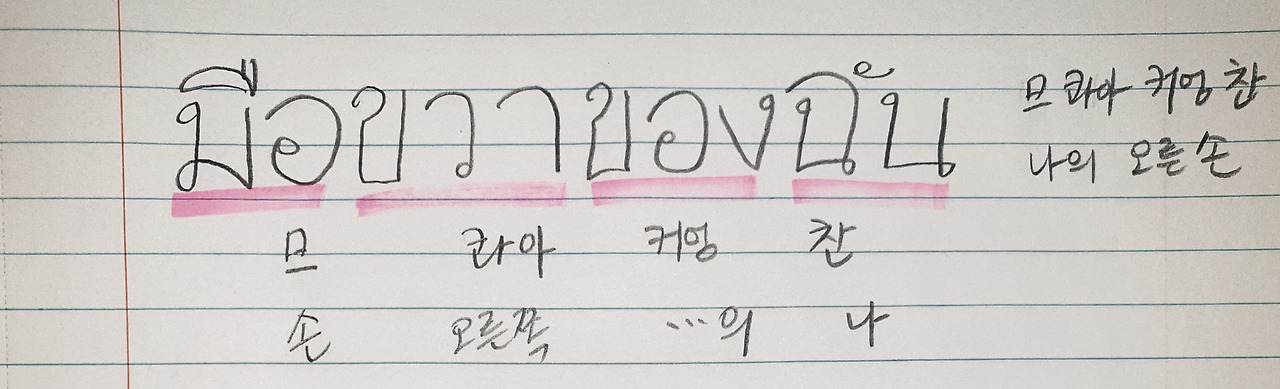 มือขวาของฉัน
므 콰아 커엉 찬
나의 오른손
므 콰아 커엉 찬
손 오른쪽 ...의 나